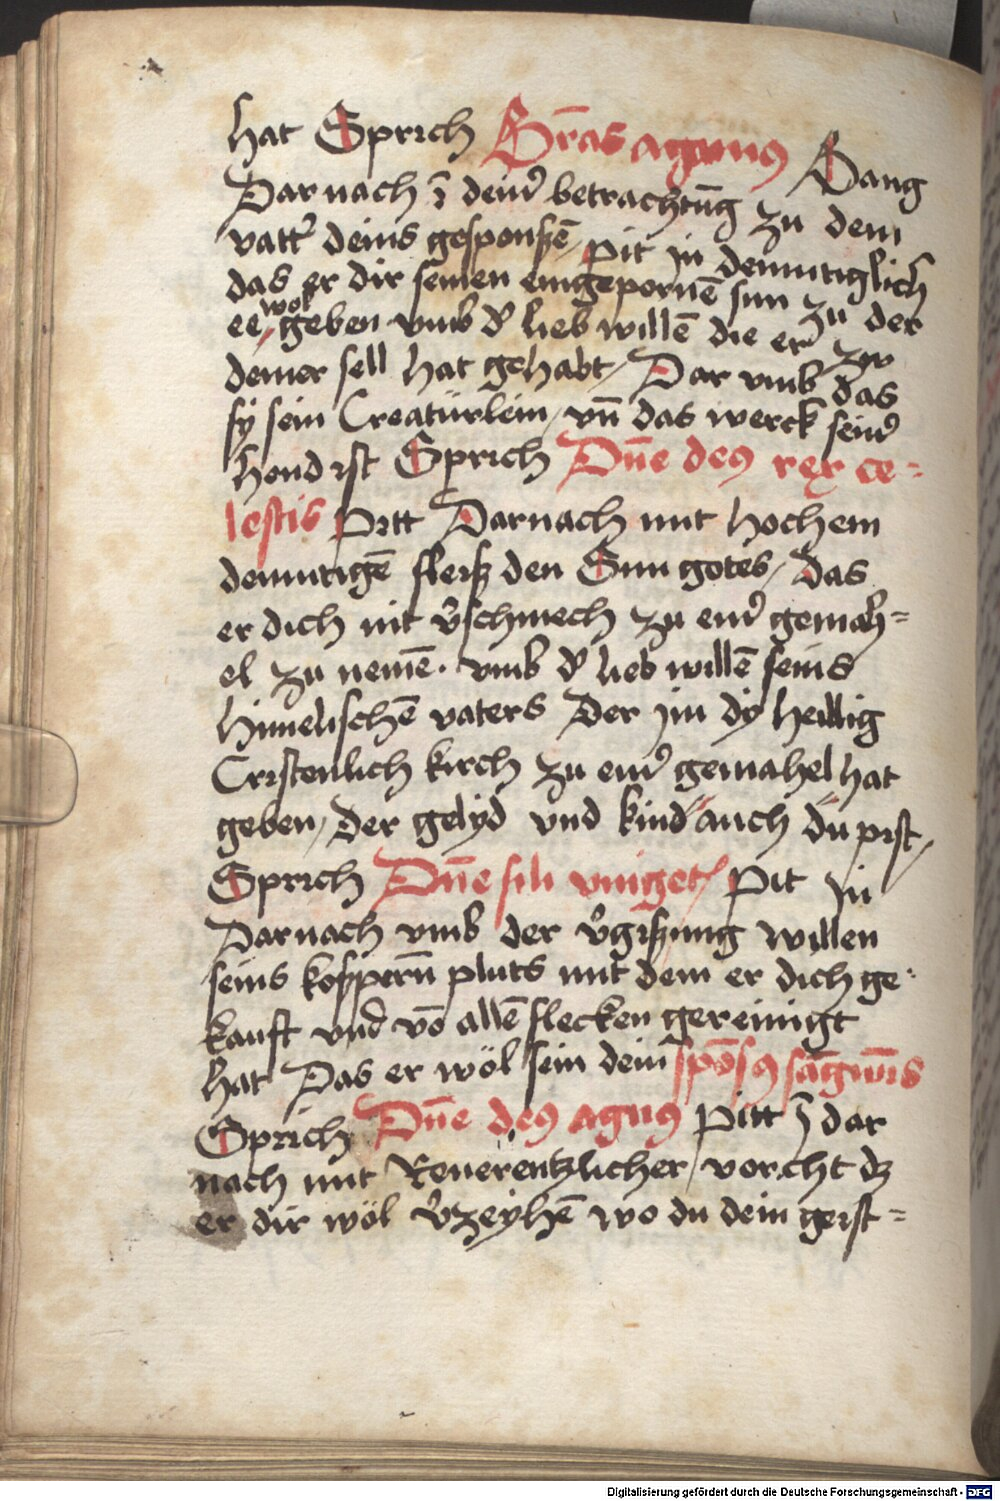 hat Sprich Grās agimus Gang
Darnach ī dein̄ betrachtūg zu dem
vatt̄ deins gesponſzē, pit in demutiglich
das er dir seinen eingepornē sun zu der
ee wol geben vmb d' lieb willē die er zw
deiner sell hat gehabt, Dar vmb das
sÿ sein Creatürlein, vn̄ das werck sein̄
hend ist Sprich Dn̄e deꝰ rex ce-
lestis Pitt Darnach mit hochem
demutigē fleisz den Sun gotes, das
er dich nit v̄schmech zu ein̄ gemah-
el zu nemē. vmb d' lieb willē seins
himelischē vaters Der jm dÿ heillig
Cristenlich kirch zu ein̄ gemahel hat
geben, Der gelyd vnd kind auch du pist,
Sprich Dn̄e fili vniget, Pit in
Darnach vmb der v̄giszung willen
seins kospern̄ pluts mit dem er dich ge-
kauft vnd vō allē flecken gereinigt
hat Das er wöl sein dein spōsꝰ sāgwīs
Sprich Dn̄e deꝰ agnꝰ Pitt ī dar
nach mit Reuerentzlicher, vorcht dz
er dir wöl v̄zeyhē wo du dein geist-
Digitalisierung gefördert durch die Deutsche Forschungsgemeinschaft - DFG